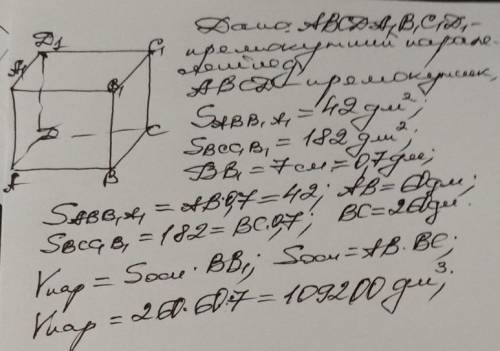 Дано: ABCDA₁B₁C₁D₁ -
прямокутний парале-
лепіпед
ABCD - прямокутник,
S_ABB₁A₁ = 42 дм²;
S_BCC₁B₁ = 182 дм²;
BB₁ = 7 см = 0,7 дм;
S_ABB₁A₁ = AB·0,7 = 42; AB = 60 дм;
S_BCC₁B₁ = 182 = BC·0,7; BC = 260 дм.
Vпар = Sосн · BB₁; Sосн = AB · BC;
Vпар = 260·60·7 = 109200 дм³;
D₁
C₁
A₁
B₁
D
C
A
B